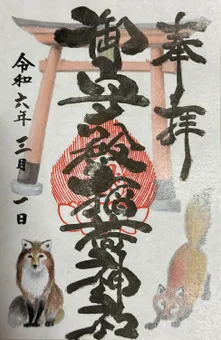 奉拝
御立殿稲荷神社
令和六年三月一日